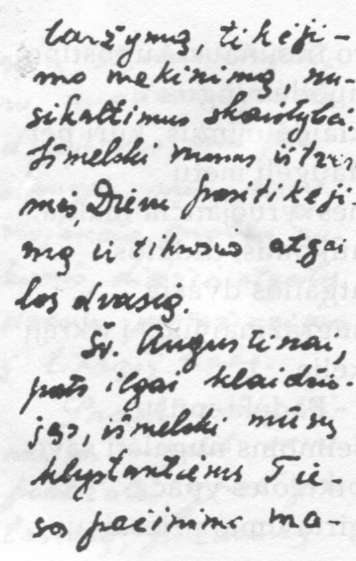 laržymą, tikėji-
mo niekinimą, nu-
sikaltimus skaistybei.
Išmelski mums ištver-
mės, Dievu pasitikėji-
mą ir tikrosios atgai-
los dvasią.
Šv. Augustinai,
pats ilgai klaidžio-
jęs, išmelski mūsų
klystantiems Tie-
sos pažinimo ma-